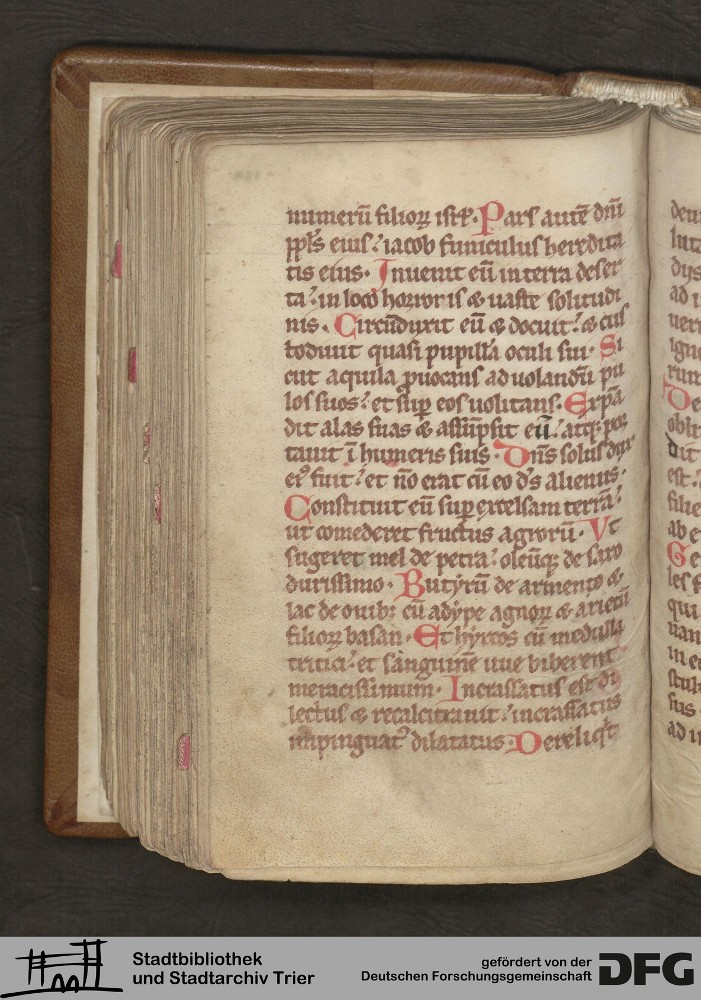 numerū filioꝝ isrł. Pars autē dn̄i
ppl̄s eius: iacob funiculus heredita
tis eius. Inuenit eū in terra deser
ta: in loco horroris & uaste solitudi
nis. Circūduxit eū & docuit: & cus
todiuit quasi pupillā oculi sui. Si
cut aquila ꝓuocans ad uolandū pu
los suos: et sup eos uolitans. Expā
dit alas suas & assūpsit eū: atq; por
tauit ī humeris suis. Dn̄s solus dux
eiꝰ fuit: et nō erat cū eo ds̄ alienus.
Constituit eū sup excelsam terrā:
ut comederet fructus agrorū. Vt
sugeret mel de petra: oleūq; de saxo
durissimo. Butyrū de armento &
lac de ouib; cū adype agnoꝝ & arietū
filioꝝ basan. Et hyrcos cū medulla
tritici: et sanguinē uue biberent
meracissimum. Incrassatus est di
lectus & recalcitrauit: incrassatus
inpinguatꝰ dilatatus. Dereliq̇t
deum
ad i
igne
De
oblit
dit
est.
filie
ab e
Ge
les f
qui
in e
sus
ad i
Stadtbibliothek
und Stadtarchiv Trier
gefördert von der
Deutschen Forschungsgemeinschaft
DFG